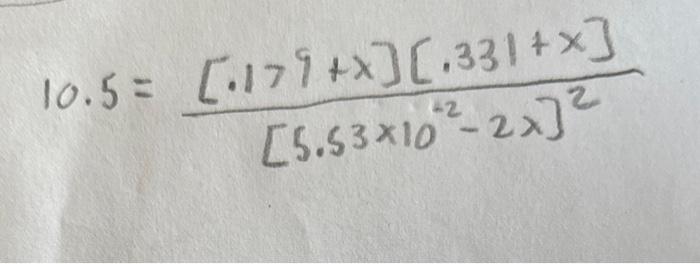 10.5 = [.179 + x][.331 + x]
[5.53 × 10⁻² - 2x]²